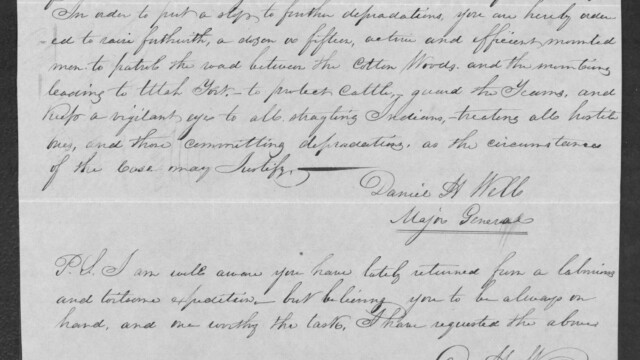 In order to put a stop to further depradations, you are hereby order
ed to raise forthwith, a dozen or fifteen, active and efficient mounted
men to patrol the road between the Cotton Woods, and the mountains
leading to Utah Fort, to protect Cattle, guard the Teams, and
keep a vigilant eye to all straglling Indians, treating all hostile
ones, and those committing depradations, as the circumstances
of the Case may Justify.
Daniel H Wells
Major General
P.S. I am well aware you have lately returned from a laborious
and tortsome expedition, but believing you to be always on
hand, and one worthy the task, I have requested the above